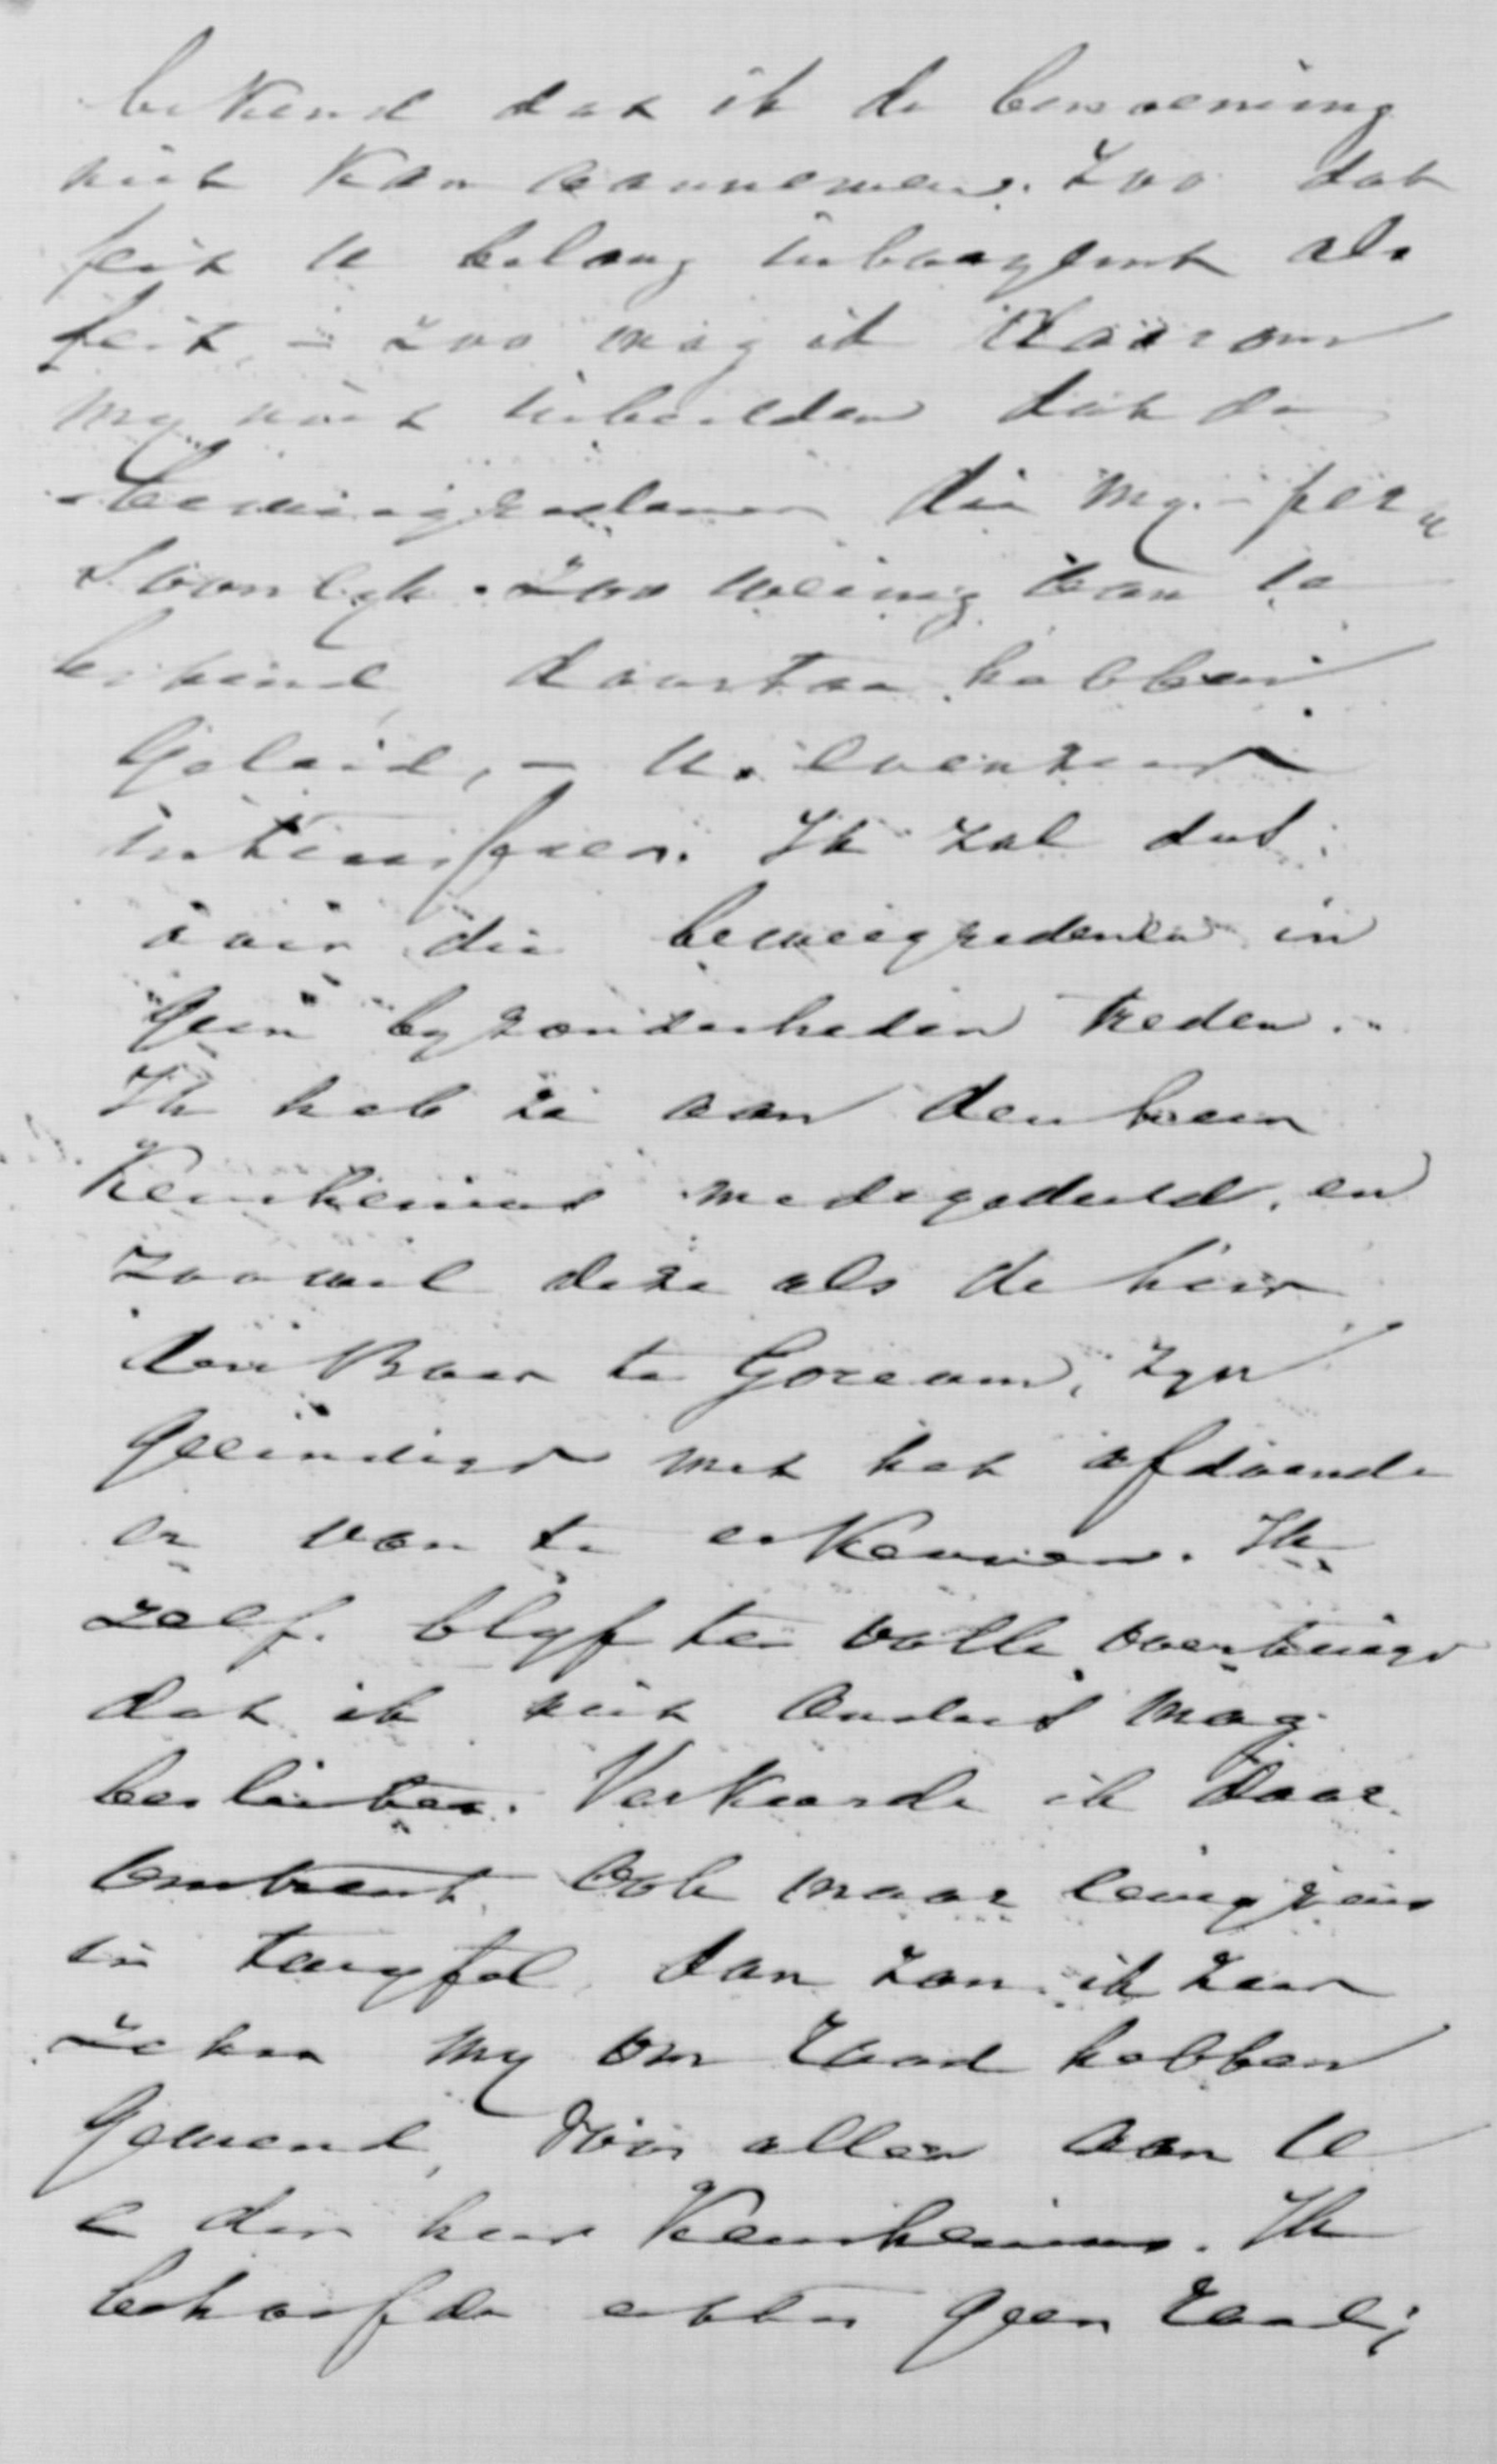 bekend dat ik de benoeming
niet kan aannemen. Zoo dat
feit U belang inboezemt als
feit, – zoo mag ik daarom
my niet inbeelden dat de
beweegredenen die my – per„
soonlyk – zoo weinig aan U
bekend, daartoe hebben
geleid, – U. evenzeer
interesseren. Ik zal dus
over die beweegredenen in
geen byzonderheden treden. –
Ik heb ze aan den heer
Keuchenius medegedeeld, en
zoowel deze als de heer
den Boer te Gorcum, zyn
geeindigd met het afdoende
er van te erkennen. Ik
zelf blyf ten volle overtuigd
dat ik niet anders mag
besluiten. Verkeerde ik daar
omtrent ook maar eenigzins
in twyfel, dan zou ik zeer
zeker my om raad hebben
gewend, vóór allen aan U
e den heer Keuchenius. Ik
behoefde echter geen raad;